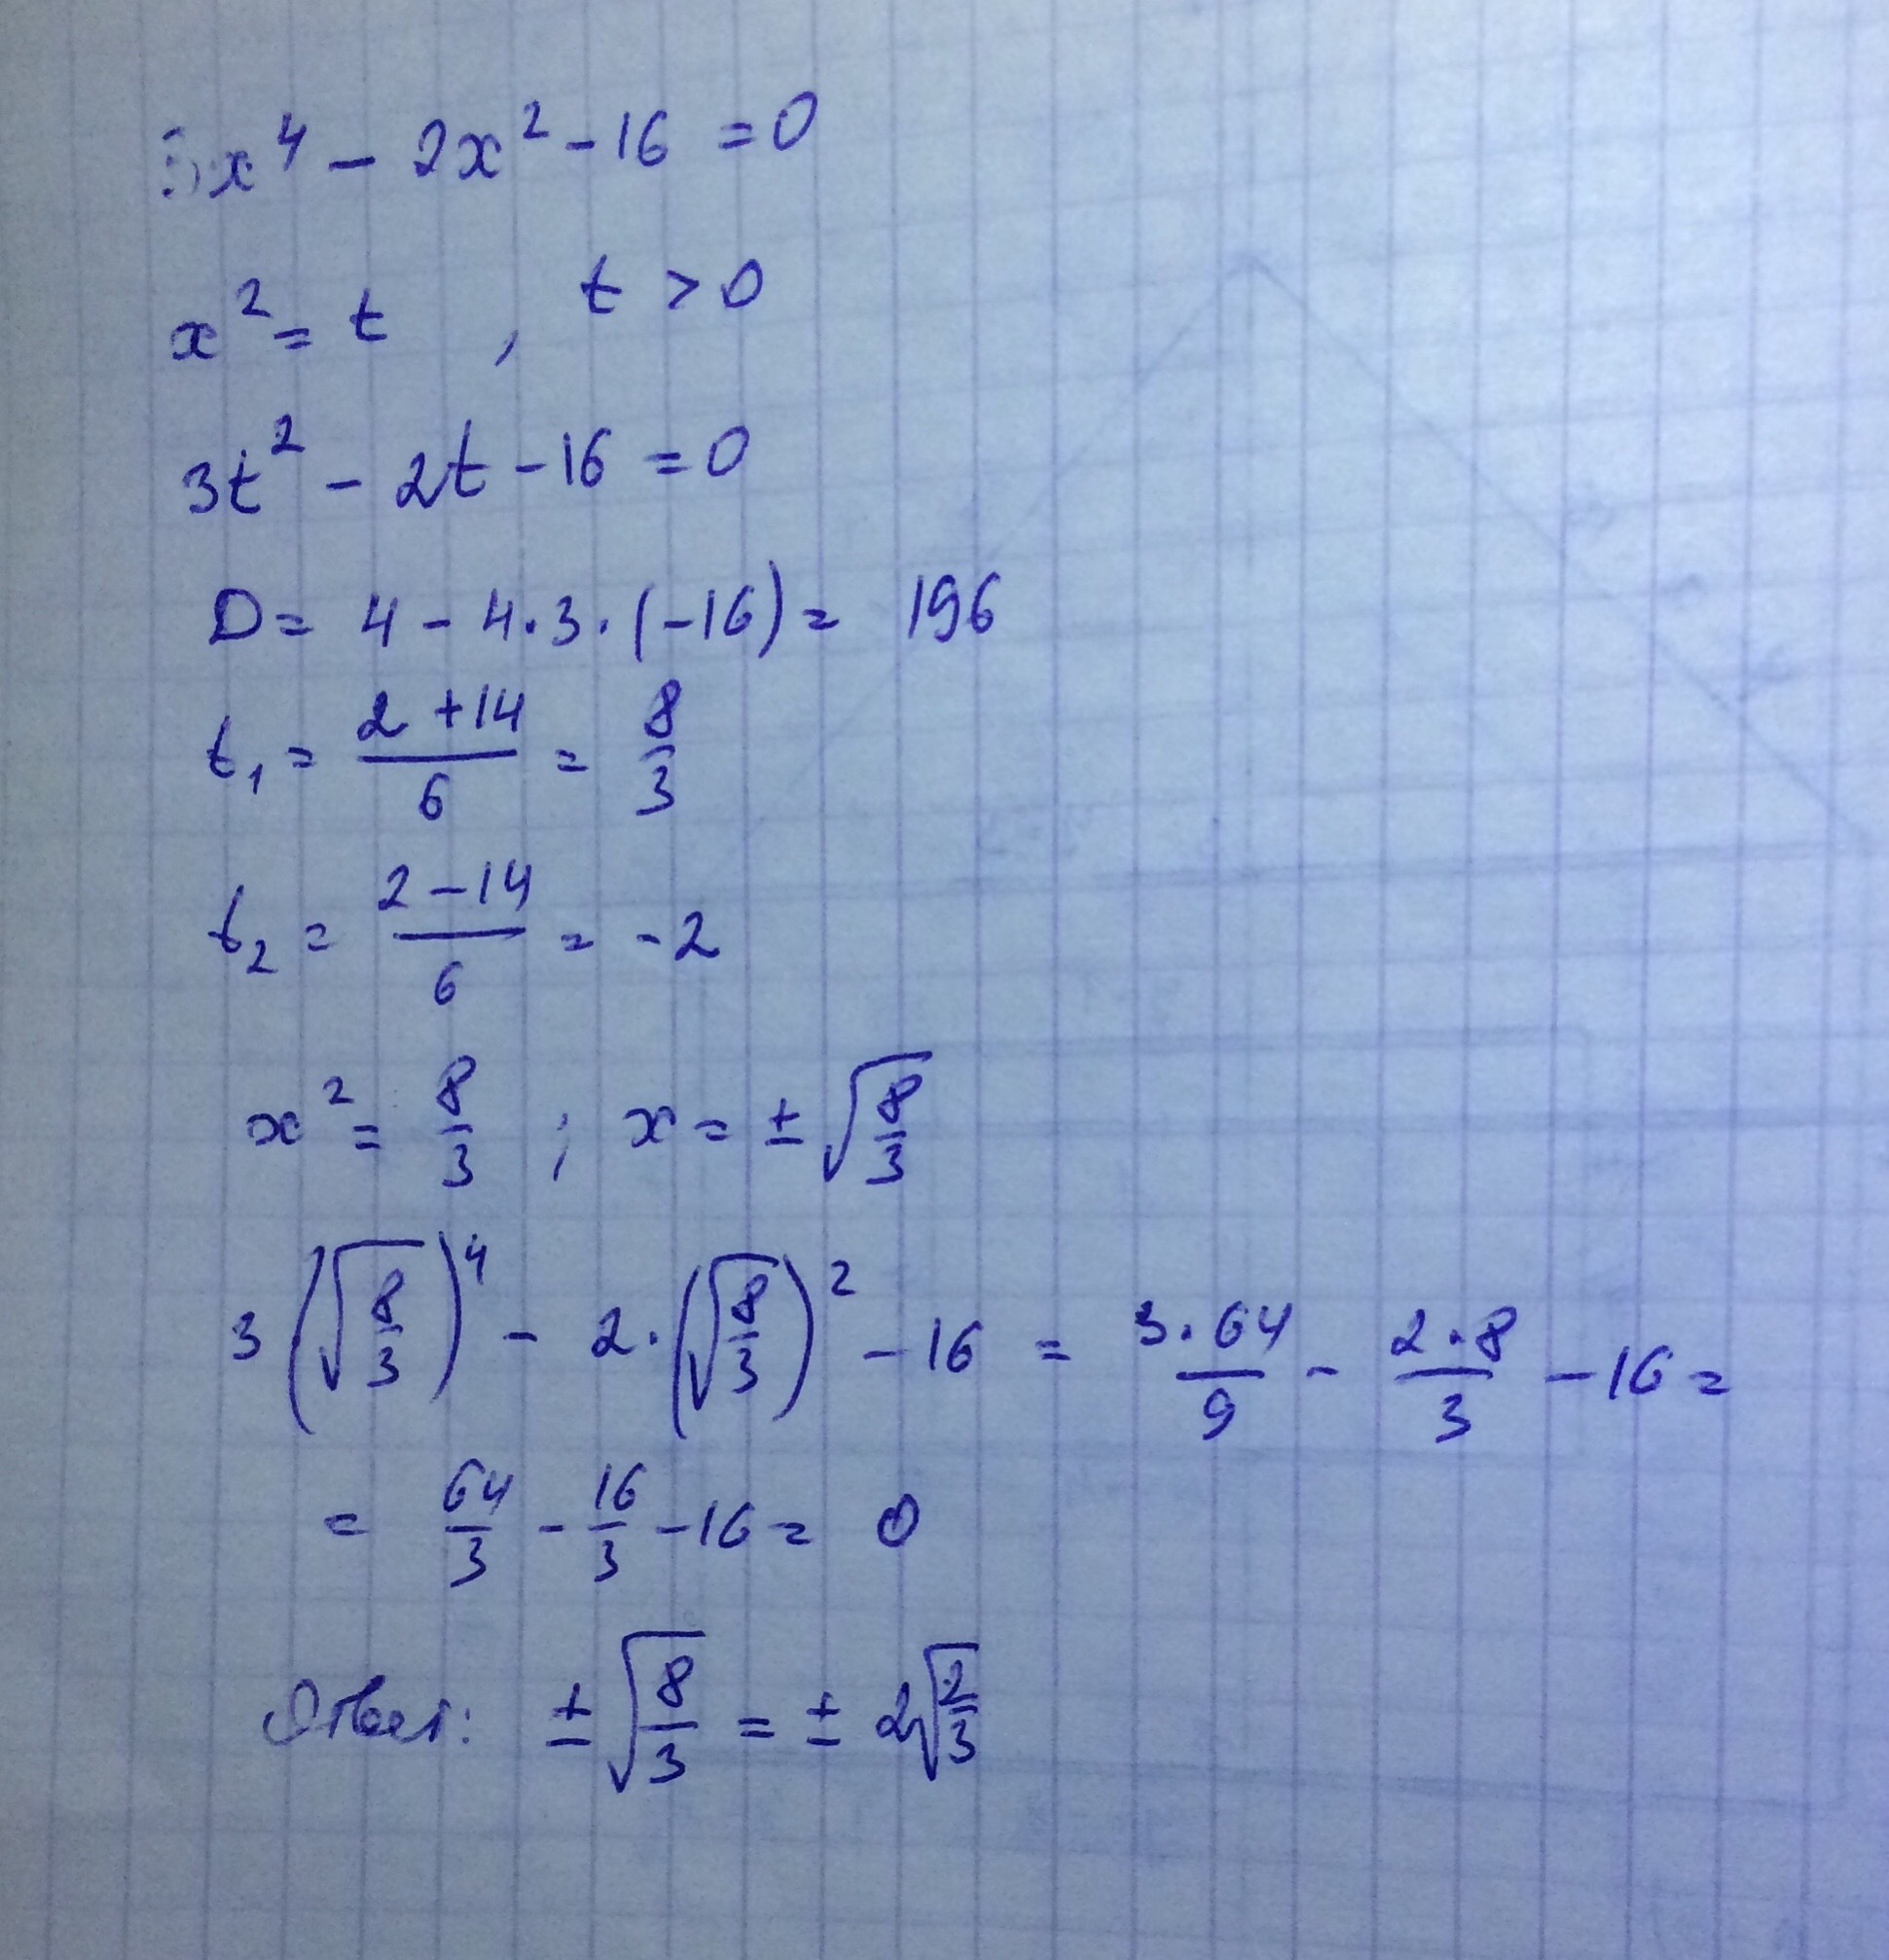 3x⁴ - 2x² - 16 = 0
x² = t , t > 0
3t² - 2t - 16 = 0
D = 4 - 4·3·(-16) = 196
t₁ = (2 + 14)/6 = 8/3
t₂ = (2 - 14)/6 = -2
x² = 8/3 ; x = ±√(8/3)
3(√(8/3))⁴ - 2·(√(8/3))² - 16 = (3·64)/9 - (2·8)/3 - 16 =
= 64/3 - 16/3 - 16 = 0
Ответ: ±√(8/3) = ± 2√(2/3)